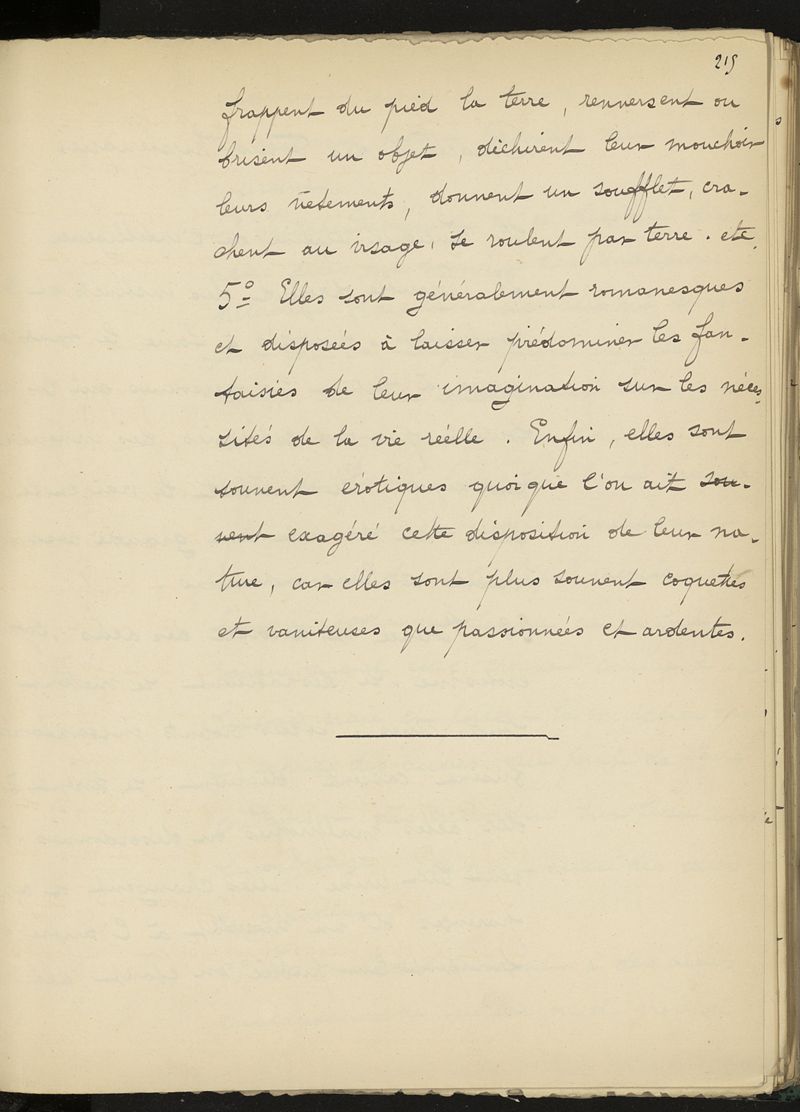 215
frappent du pied la terre, renversent ou
brisent un objet, déchirent leur mouchoir
leurs vêtements, donnent un soufflet, cra-
chent au visage, se roulent par terre. etc.
5º Elles sont généralement romanesques
et disposées à laisser prédominer les fan-
taisies de leur imagination sur les néces-
sités de la vie réelle. Enfin, elles sont
souvent érotiques quoique l'on ait sou-
vent exagéré cette disposition de leur na-
ture, car elles sont plus souvent coquettes
et vaniteuses que passionnées et ardentes.